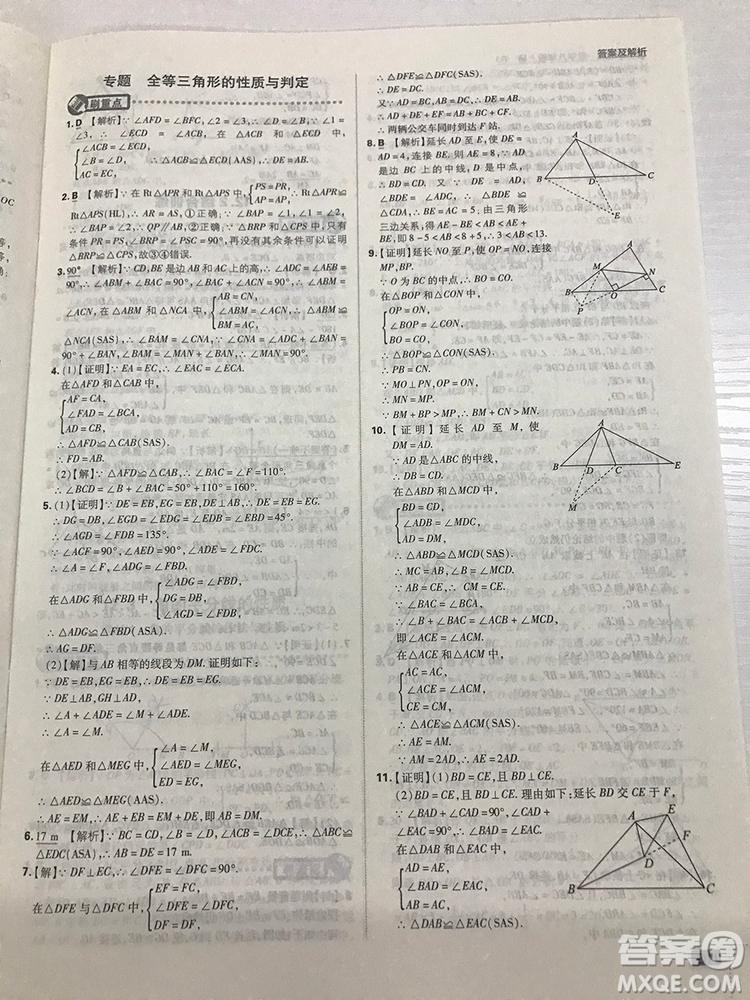 答案及解析
专题 全等三角形的性质与判定
刷重点
1. D 【解析】∵ ∠AFD = ∠BFC, ∠2 = ∠3, ∴ ∠1 =
∠3, ∴ ∠ECD = ∠ACB. 在△ACB和△ECD中,
∠B = ∠D,
∠ACB = ∠ECD, ∴ △ACB≌△ECD(AAS).
AC = EC,
2. B 【解析】∵ 在Rt△APR和Rt△APS中, PS = PR,
AP = AP,
∴ Rt△APR≌Rt
△APS(HL), ∴ AR = AS, ①正确; ∴ ∠BAP = ∠1.
∵ ∠1 = ∠2, ∴ ∠BAP = ∠2, ∴ QP∥AB, ②正确; 只有
条件PR = PS, ∠BRP = ∠PSC = 90°, 再没有其余条件可以证明
△BRP≌△CPS, 故③④错误.
3. 90° 【解析】∵ CD, BE是边AB与AC上的高, ∴ ∠ADC = ∠AEB =
90°, ∴ ∠ABM = ∠ACN. 在△ABM和△NCA中,
AB = CN,
∠ABM = ∠ACN,
BM = AC,
∴ △ABM≌
△NCA(SAS), ∴ ∠BAM = ∠CNA. ∵ ∠CNA + ∠BAN =
90°, ∴ ∠BAM + ∠BAN = 90°, 即∠MAN = 90°.
4. (1)【证明】∵ EA = EC, ∴ ∠EAC = ∠ECA.
在△AFD和△CAB中,
AF = CA,
∠FAD = ∠BCA,
AD = CB,
∴ △AFD≌△CAB(SAS).
∴ FD = AB.
(2)【解】∵ △AFD≌△CAB, ∴ ∠BAC = ∠F = 110°,
∴ ∠BCD = ∠B + ∠BAC = 50° + 110° = 160°.
5. (1)【证明】∵ DE = EG, EG⊥BD, ∴ DE = EB = EG.
∴ DG = DB, ∠EGD = ∠EDG = 45°.
∴ ∠AGD = ∠FDG = 135°.
∵ ∠ACF = 90°, ∠AED = 90°, ∴ ∠A = ∠FDC.
∵ ∠FDC = ∠FBD, ∴ ∠A = ∠FBD.
在△ADG和△FBD中,
∠A = ∠FBD,
DG = DB,
∠AGD = ∠FDB,
∴ △ADG≌△FBD(ASA).
∴ AG = DF.
(2)【解】与AB相等的线段为DM. 证明如下:
∵ DE = EB = EG, DE⊥EB, ∴ ∠DBE = 45°.
∵ DE⊥AB, GH⊥AD,
∴ ∠A + ∠ADE = ∠M + ∠ADE.
∴ ∠A = ∠M.
在△AED和△MEG中,
∠A = ∠M,
∠AED = ∠MEG,
DE = EG,
∴ △AED≌△MEG(AAS).
∴ AE = EM. ∴ AE + EB = EM + DE, 即AB = DM.
6. 17 m 【解析】∵ BC = CD, ∠B = ∠D, ∠ACB = ∠DCE, ∴ △ABC≌
△EDC(ASA), ∴ AB = DE = 17 m.
7. 【解】∵ DF⊥CE, ∴ ∠DFE = ∠DFC = 90°.
在△DFE与△DFC中,
EF = FC,
∠DFE = ∠DFC,
DF = DF,
∴ △DFE≌△DFC(SAS).
∴ DE = DC.
又∵ AD = BC, ∴ AD + DC = BC + DE.
∵ AC = AD + DC, DE = BE, ∴ AC = BC + BE.
∴ 两辆公交车同时到达F站.
8. B 【解析】延长AD至E, 使DE =
AD = 4, 连接BE, 则AE = 8. ∵ AD
是边BC上的中线, D是中点,
∴ BD = CD. 又∵ ∠BDE =
∠CDA, ∴ BE = AC = 5. 由三角形
三边关系, 得AE - BE < AB < AE + BE,
即8 - 5 < AB < 8 + 5, ∴ 3 < AB < 13.
9. 【证明】延长NO至P, 使OP = NO, 连接
MP, BP.
∵ O为BC的中点, ∴ BO = CO.
在△BOP和△CON中,
OP = ON,
∠BOP = ∠CON,
BO = CO,
∴ △BOP≌△CON(SAS),
∴ PB = CN.
∵ ∠MON = 90°, OP = ON,
∴ MN = MP.
∵ BM + BP > MP, ∴ BM + CN > MN.
10. 【证明】延长AD至M, 使
DM = AD.
∵ AD是△ABC的中线,
∴ BD = CD.
在△ABD和△MCD中,
BD = CD,
∠ADB = ∠MDC,
AD = MD,
∴ △ABD≌△MCD(SAS).
∴ MC = AB, ∠B = ∠MCD.
∵ AB = CE, ∴ CM = CE.
∵ ∠BAC = ∠BCA,
∴ ∠B + ∠BAC = ∠ACB + ∠MCD,
即∠ACE = ∠ACM.
在△ACE和△ACM中,
AC = AC,
∠ACE = ∠ACM,
CE = CM,
∴ △ACE≌△ACM(SAS).
∴ AE = AM.
∵ AM = 2AD, ∴ AE = 2AD.
11. 【证明】(1) BD = CE, 且BD⊥CE.
(2) BD = CE, 且BD⊥CE. 理由如下: 延长BD交CE于F,
∵ ∠BAC = ∠DAE = 90°,
∴ ∠BAD = ∠EAC.
在△DAB和△EAC中,
AD = AE,
∠BAD = ∠EAC,
AB = AC,
∴ △DAB≌△EAC(SAS).
答案圈
MXQE.COM